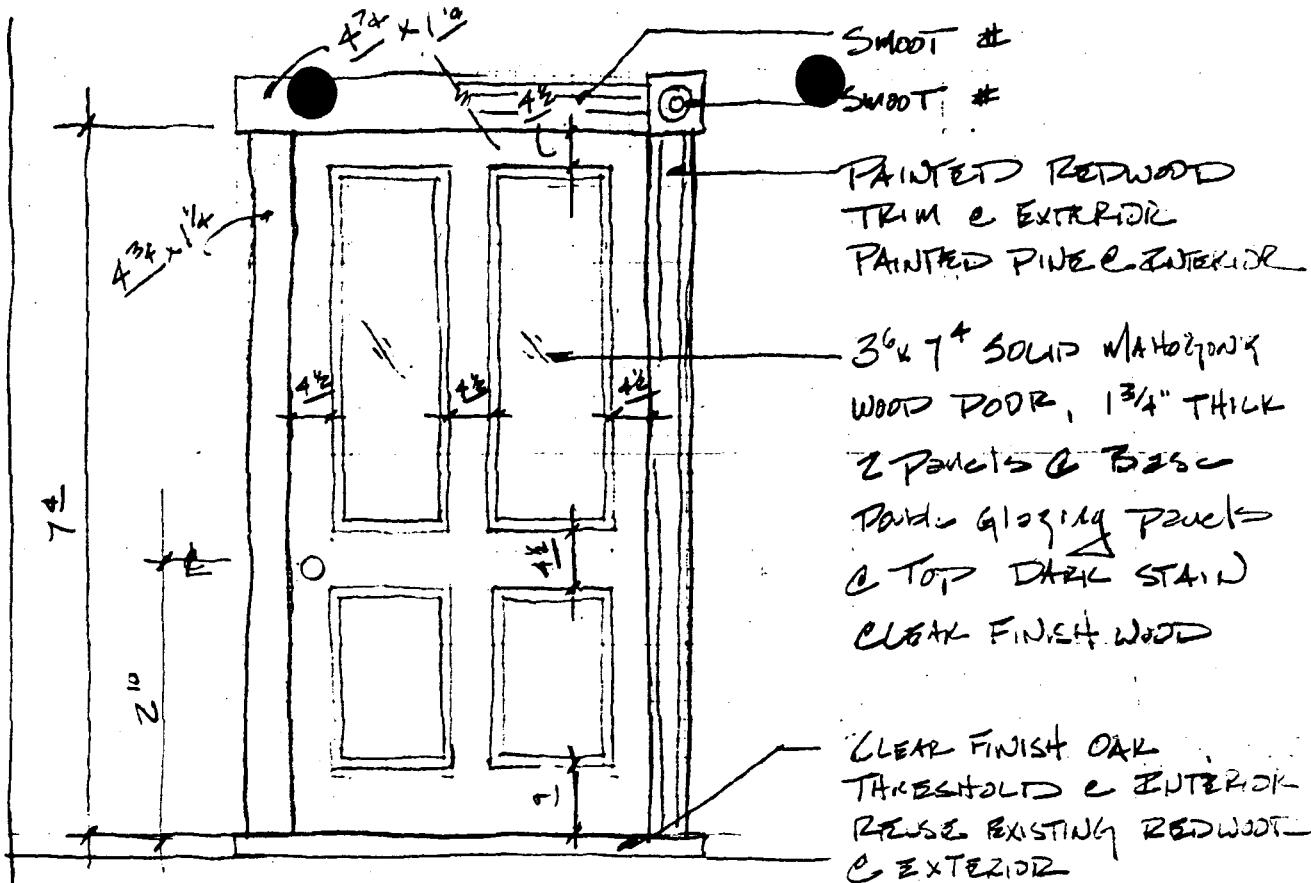 4 7/8 x 1 1/2
SMOOT #
SMOOT #
4 1/2
PAINTED REDWOOD
TRIM @ EXTERIOR
PAINTED PINE @ INTERIOR
4 3/4 x 1 1/4
3⁶ x 7⁴ SOLID MAHOGONY
WOOD DOOR, 1 3/4" THICK
2 Panels @ Base
Double Glazing Panels
@ TOP DARK STAIN
CLEAR FINISH WOOD
4 1/2
4 1/2
4 1/2
7⁴
4 1/2
2¹⁰
CLEAR FINISH OAK
THRESHOLD @ INTERIOR
REUSE EXISTING REDWOOD
@ EXTERIOR